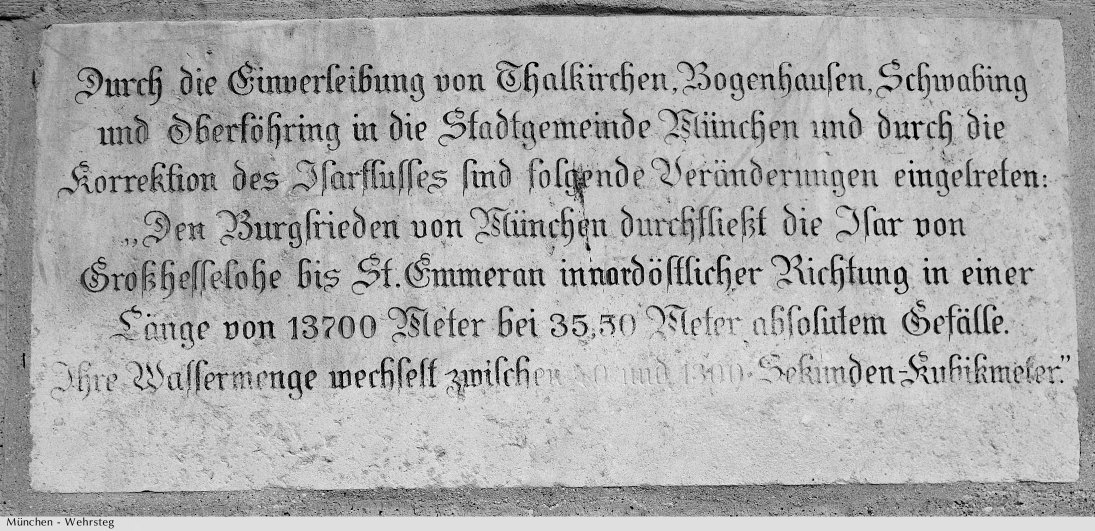 Durch die Einverleibung von Thalkirchen, Bogenhausen, Schwabing
und Oberföhring in die Stadtgemeinde München und durch die
Korrektion des Isarflusses sind folgende Veränderungen eingetreten:
„Den Burgfrieden von München durchfließt die Isar von
Großhesselohe bis St. Emmeran in nordöstlicher Richtung in einer
Länge von 13700 Meter bei 35,50 Meter absolutem Gefälle.
Ihre Wassermenge wechselt zwischen und Sekunden-Kubikmeter."
München - Wehrsteg